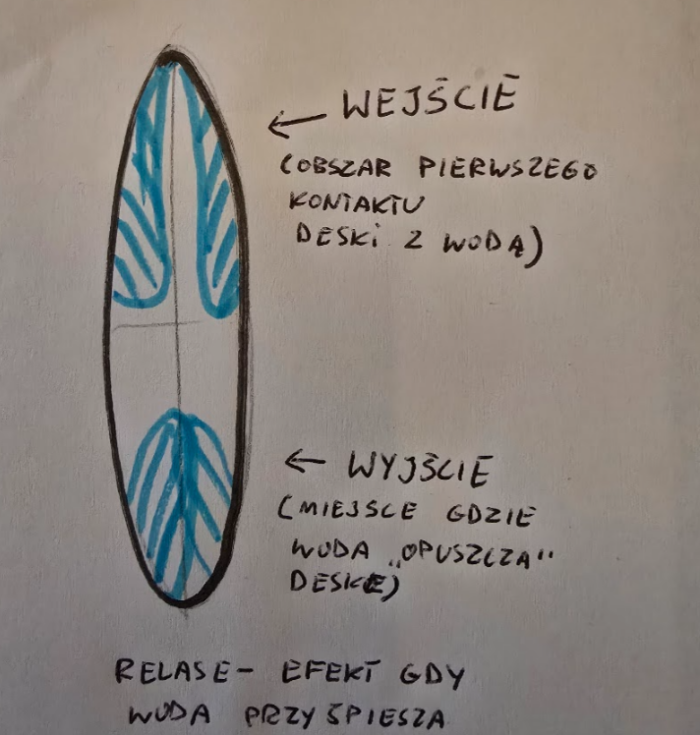 ← WEJŚCIE
(OBSZAR PIERWSZEGO
KONTAKTU
DESKi Z WODĄ)
← WYJŚCIE
(MIEJSCE GDZIE
WODA „OPUSZCZA"
DESKĘ)
RELASE - EFEKT GDY
WODA PRZYŚPIESZA